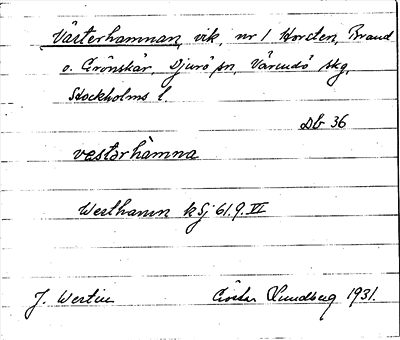 Västerhamnan, vik, nr 1 Horsten, Brand
o. Grönskär, Djurö sn, Värmdö skg,
Stockholms l.
Db 36
vestərhàmna
Westhamn k Sj 61.9.VI
J. Westin Gösta Lundberg 1931.